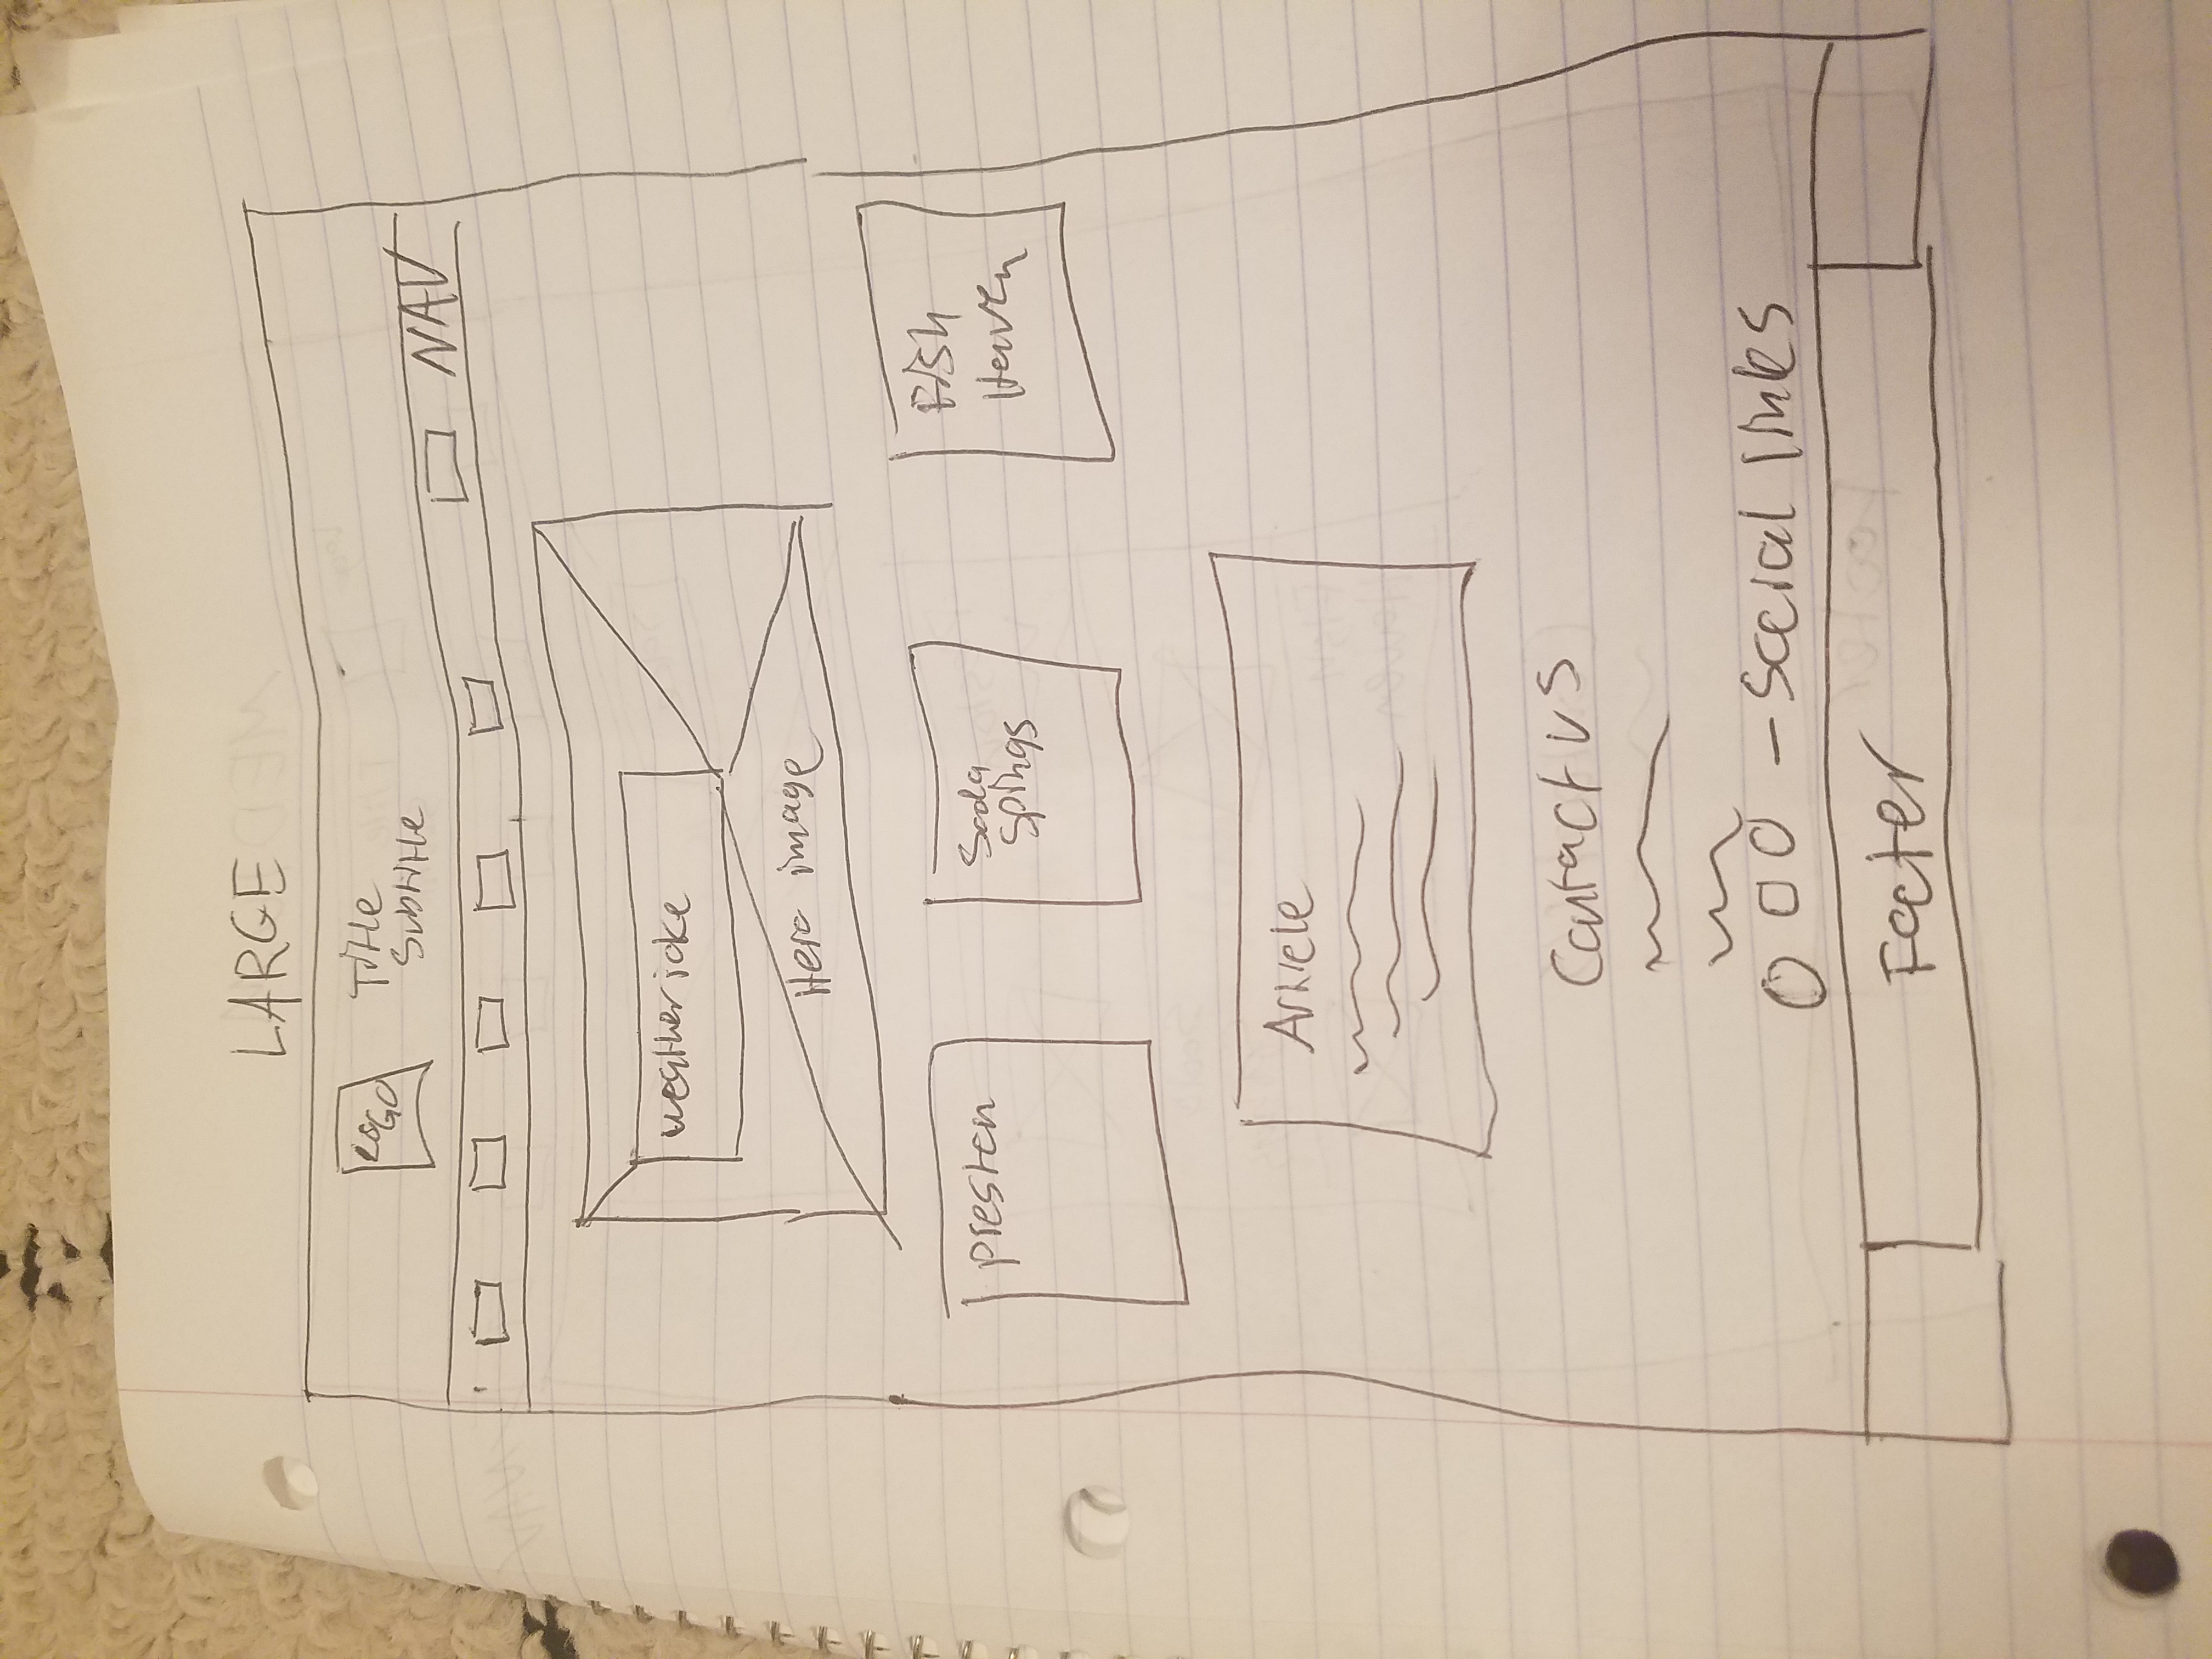 LARGE
LOGO
Title
Subtitle
NAV
weather joke
Hero image
preston
Soda
Spings
Fish
Haven
Article
Contact us
— Social links
Footer